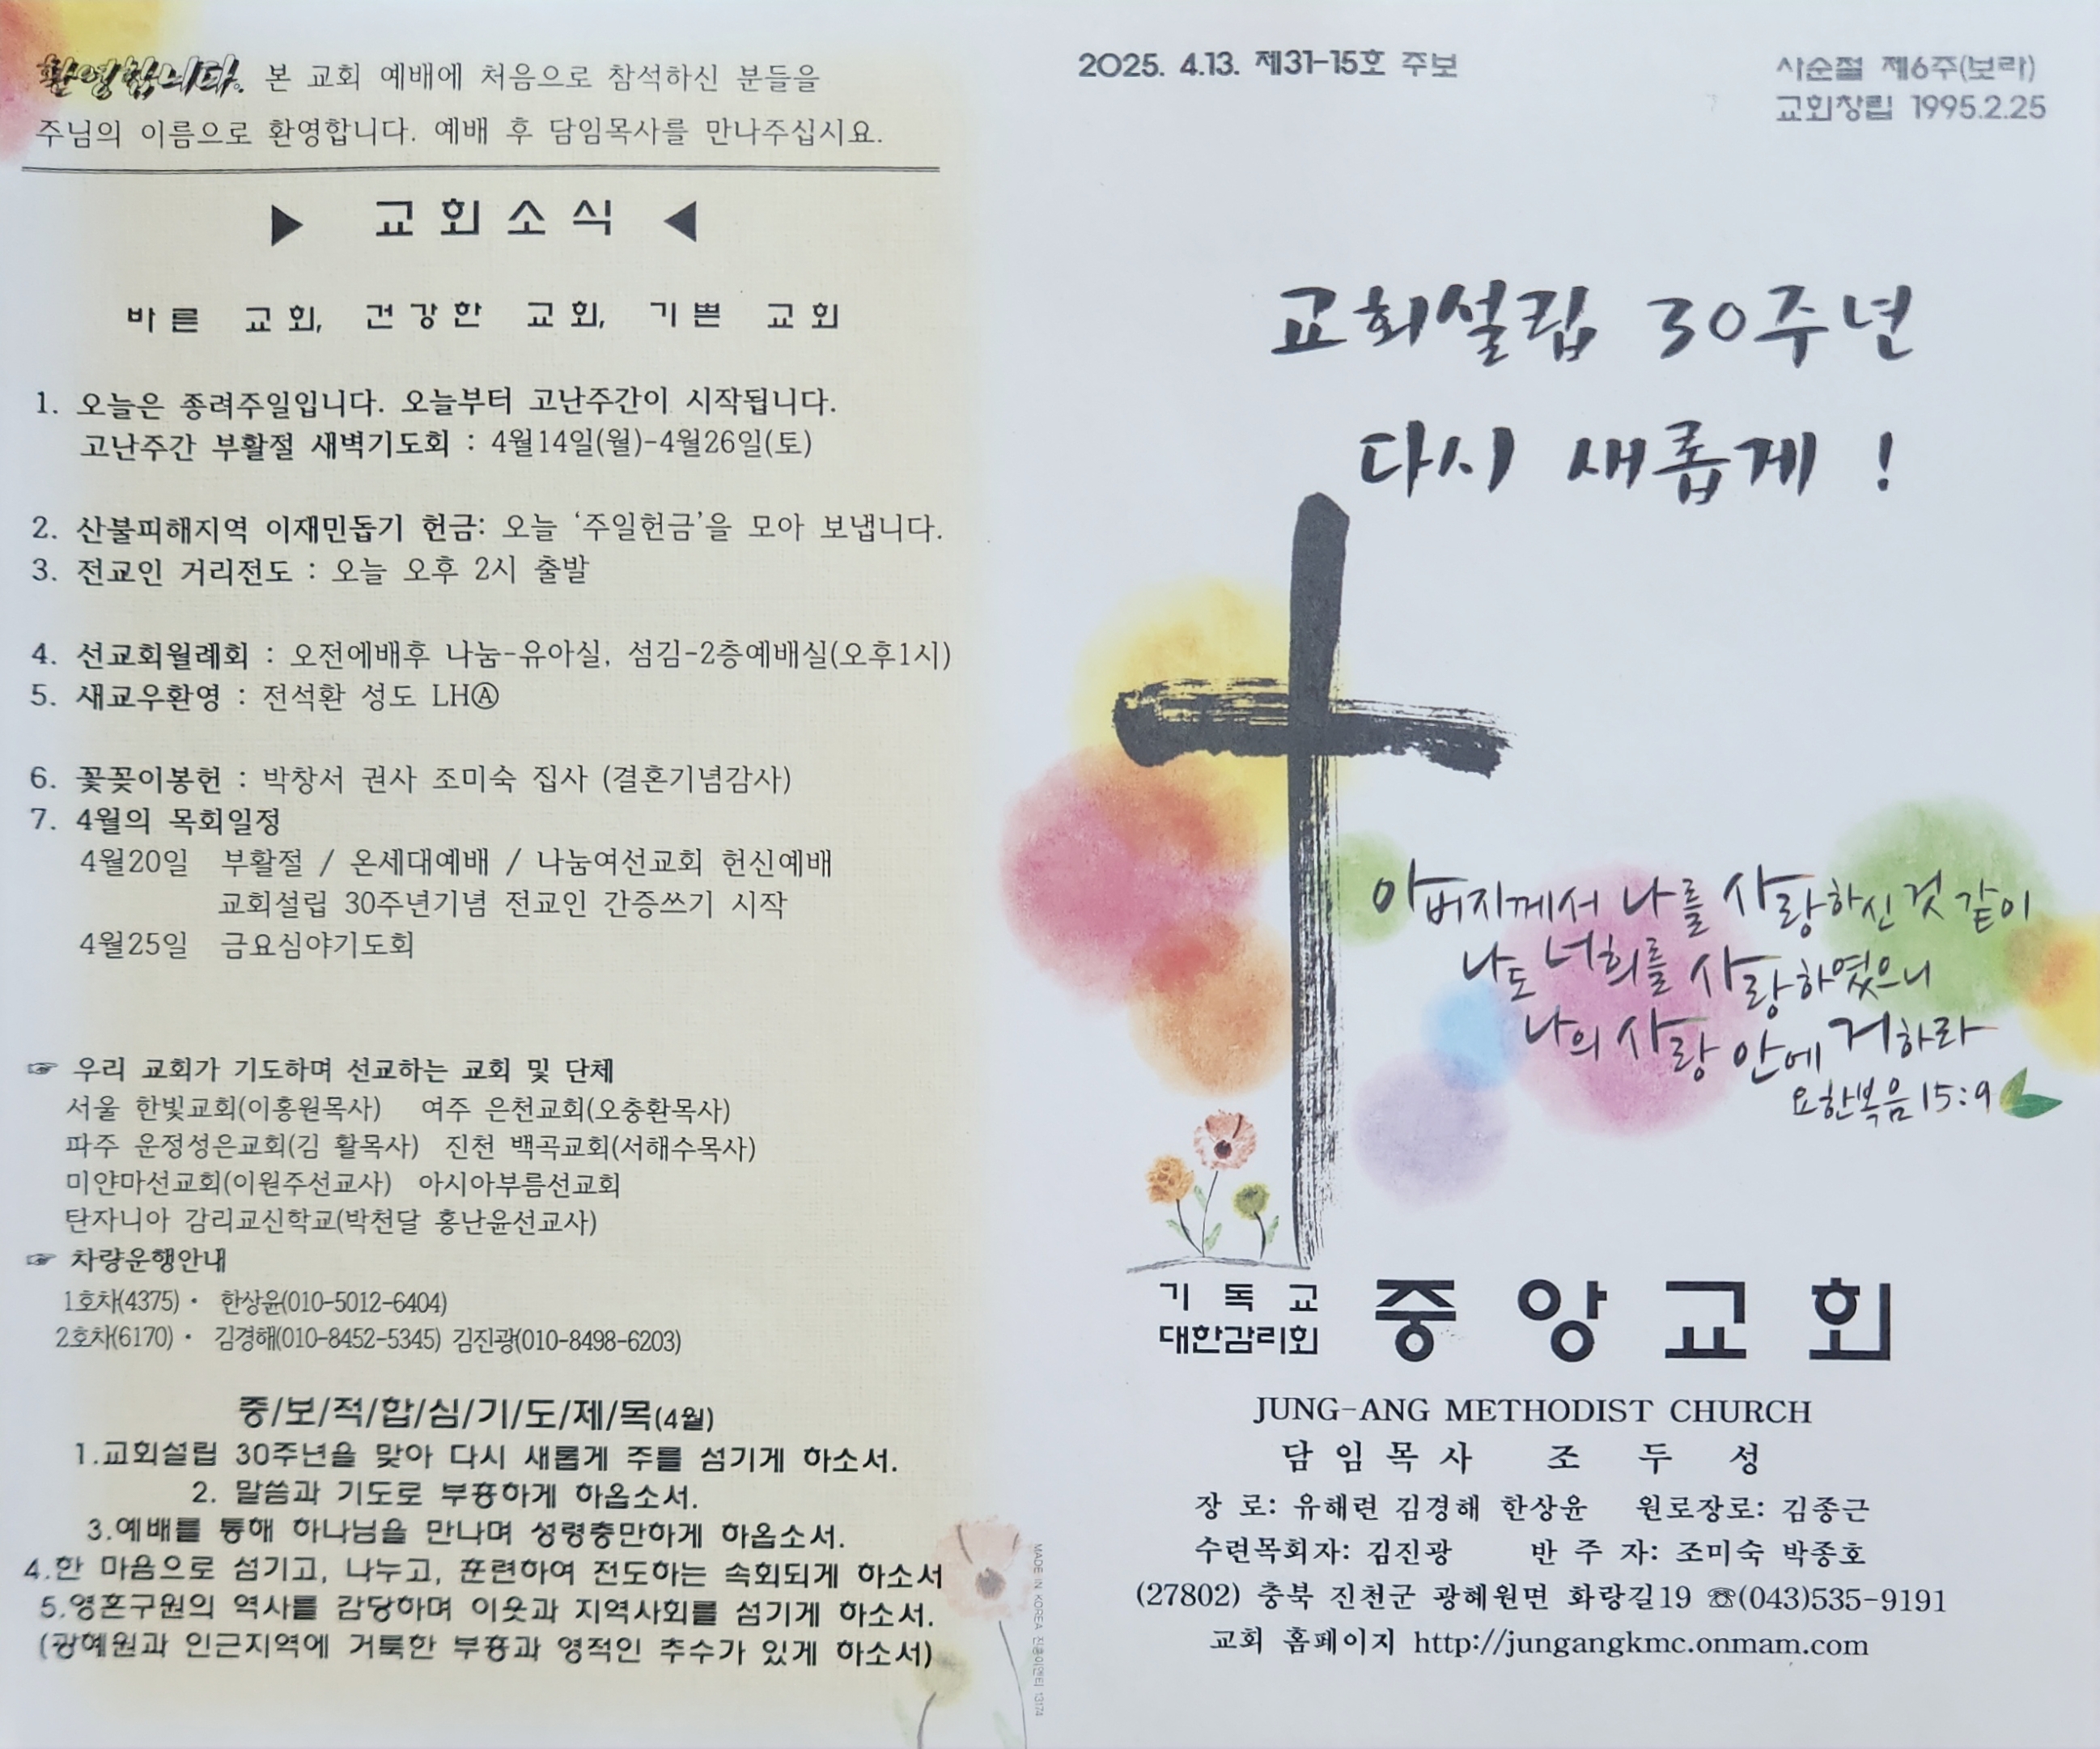 환영합니다. 본 교회 예배에 처음으로 참석하신 분들을
주님의 이름으로 환영합니다. 예배 후 담임목사를 만나주십시요.
▶ 교회소식 ◀
바른 교회, 건강한 교회, 기쁜 교회
1. 오늘은 종려주일입니다. 오늘부터 고난주간이 시작됩니다.
고난주간 부활절 새벽기도회 : 4월14일(월)-4월26일(토)
2. 산불피해지역 이재민돕기 헌금: 오늘 '주일헌금'을 모아 보냅니다.
3. 전교인 거리전도 : 오늘 오후 2시 출발
4. 선교회월례회 : 오전예배후 나눔-유아실, 섬김-2층예배실(오후1시)
5. 새교우환영 : 전석환 성도 LHⒶ
6. 꽃꽂이봉헌 : 박창서 권사 조미숙 집사 (결혼기념감사)
7. 4월의 목회일정
4월20일 부활절 / 온세대예배 / 나눔여선교회 헌신예배
교회설립 30주년기념 전교인 간증쓰기 시작
4월25일 금요심야기도회
☞ 우리 교회가 기도하며 선교하는 교회 및 단체
서울 한빛교회(이홍원목사) 여주 은천교회(오충환목사)
파주 운정성은교회(김 활목사) 진천 백곡교회(서해수목사)
미얀마선교회(이원주선교사) 아시아부름선교회
탄자니아 감리교신학교(박천달 홍난윤선교사)
☞ 차량운행안내
1호차(4375)· 한상윤(010-5012-6404)
2호차(6170)· 김경해(010-8452-5345) 김진광(010-8498-6203)
중/보/적/합/심/기/도/제/목(4월)
1.교회설립 30주년을 맞아 다시 새롭게 주를 섬기게 하소서.
2. 말씀과 기도로 부흥하게 하옵소서.
3.예배를 통해 하나님을 만나며 성령충만하게 하옵소서.
4.한 마음으로 섬기고, 나누고, 훈련하여 전도하는 속회되게 하소서
5.영혼구원의 역사를 감당하며 이웃과 지역사회를 섬기게 하소서.
(광혜원과 인근지역에 거룩한 부흥과 영적인 추수가 있게 하소서)
MADE IN KOREA 진흥이앤티 13174
2025. 4.13. 제31-15호 주보
사순절 제6주(보라)
교회창립 1995.2.25
교회설립 30주년
다시 새롭게 !
아버지께서 나를 사랑하신 것 같이
나도 너희를 사랑하였으니
나의 사랑 안에 거하라
요한복음 15:9
기독교
대한감리회
중앙교회
JUNG-ANG METHODIST CHURCH
담임목사 조 두 성
장 로: 유해련 김경해 한상윤 원로장로: 김종근
수련목회자: 김진광 반 주 자: 조미숙 박종호
(27802) 충북 진천군 광혜원면 화랑길19 ☏(043)535-9191
교회 홈페이지 http://jungangkmc.onmam.com